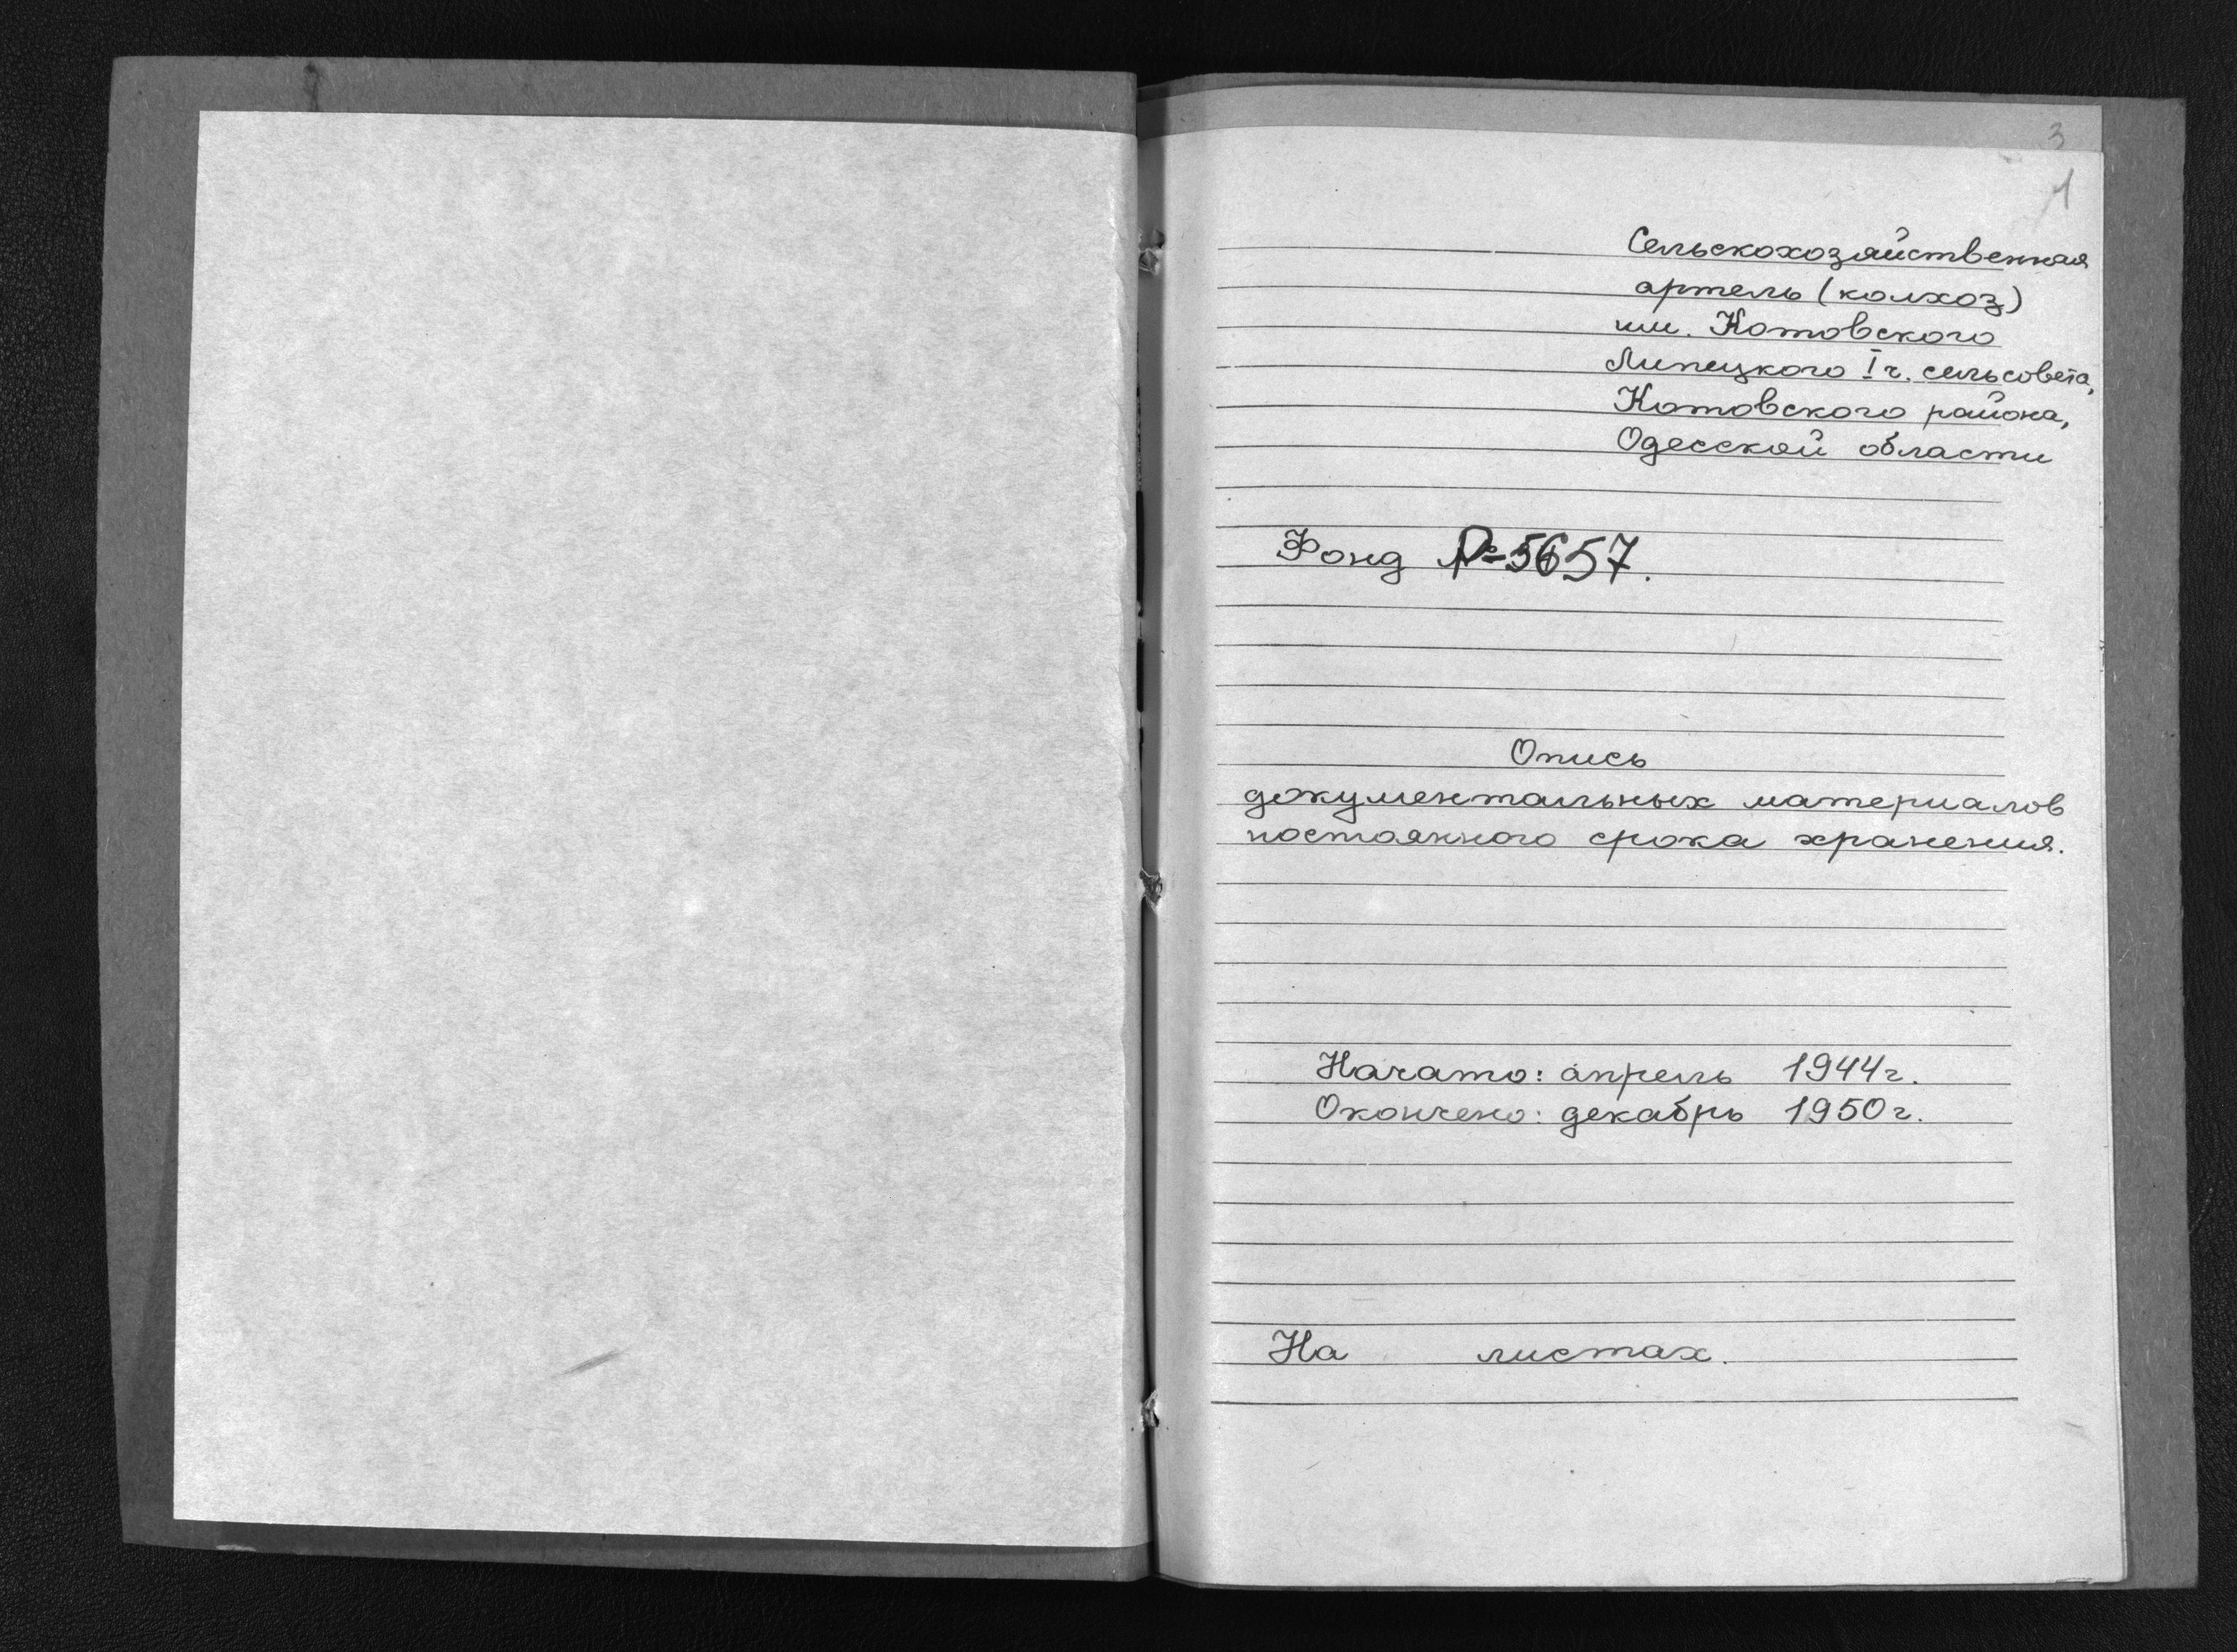 3
1
Сельскохозяйственная
артель (колхоз)
им. Котовского
Липецкого I ч. сельсовета,
Котовского района,
Одесской области
Фонд Р-5657.
Опись
документальных материалов
постоянного срока хранения.
Начато: апрель 1944г.
Окончено: декабрь 1950г.
На листах.